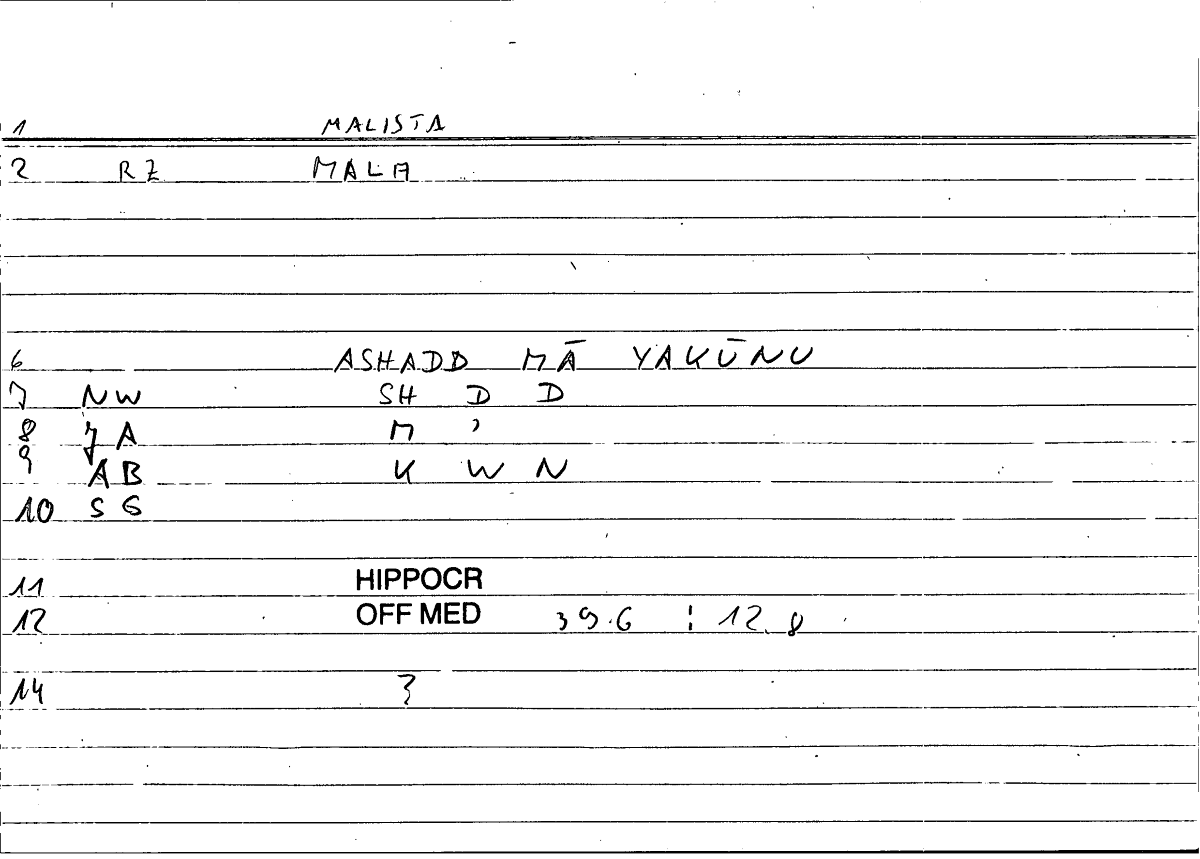 1 MALISTA
2 RZ MALA
6 ASHADD MĀ YAKŪNU
7 NW SH D D
8 JA M ʾ
9 AB K W N
10 SG
11 HIPPOCR
12 OFF MED 39.6 : 12.8
14 3